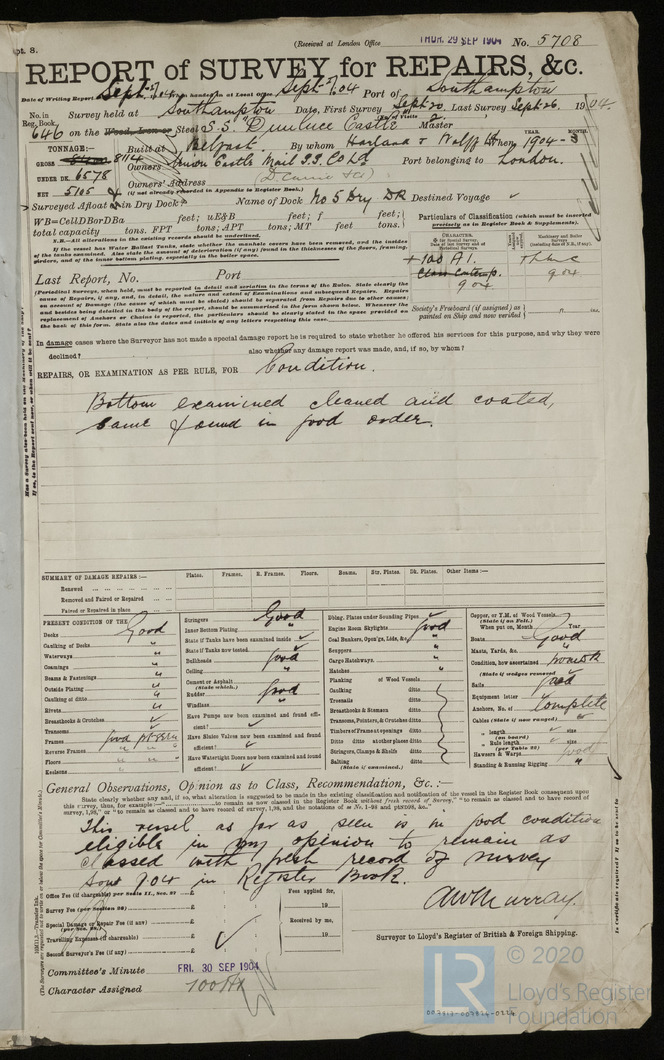 pt. 8.
(Received at London Office THUR. 29 SEP 1904 No. 5708
REPORT of SURVEY for REPAIRS, &c.
Date of Writing Report Sept. 04 When handed in at Local Office Sept. 04 Port of Southampton
No. in Reg. Book. Survey held at Southampton Date, First Survey Sept 20. Last Survey Sept 26. 1904.
646 on the Wood, Iron or Steel S.S. Dunluce Castle Master
TONNAGE:— Built at Belfast. By whom Harland & Wolff Ld When 1904-3
YEAR. MONTHS.
GROSS 8114 Owners Union Castle Mail S.S. Co Ld Port belonging to London.
UNDER DK. 6578 Owners' Address (D Currie & Co)
NET 5105 (if not already recorded in Appendix to Register Book.)
Surveyed Afloat or in Dry Dock? Name of Dock No 5 Dry Destined Voyage
WB=CellDBorDBa feet; uE&B feet; f feet;
total capacity tons. FPT tons; APT tons; MT feet tons.
Particulars of Classification (which must be inserted precisely as in Register Book & Supplements).
N.B.—All alterations in the existing records should be underlined.
If the vessel has Water Ballast Tanks, state whether the manhole covers have been removed, and the insides of the tanks examined. Also state the amount of deterioration (if any) found in the thicknesses of the floors, framing, girders, and of the inner bottom plating, especially in the boiler space.
CHARACTER.
+100 A1.
9 04
9 04
Last Report, No. Port
(Periodical Surveys, when held, must be reported in detail and seriatim in the terms of the Rules. State clearly the cause of Repairs, if any, and, in detail, the nature and extent of Examinations and subsequent Repairs. Repairs on account of Damage (the cause of which must be stated) should be separated from Repairs due to other causes; and besides being detailed in the body of the report, should be summarised in the form shown below. Whenever the replacement of Anchors or Chains is reported, the particulars should be clearly stated in the space provided on the back of this form. State also the dates and initials of any letters respecting this case.
Society's Freeboard (if assigned) as painted on Ship and now verified
In damage cases where the Surveyor has not made a special damage report he is required to state whether he offered his services for this purpose, and why they were
declined? also whether any damage report was made, and, if so, by whom?
REPAIRS, OR EXAMINATION AS PER RULE, FOR Condition.
Bottom examined cleaned and coated,
same found in good order.
SUMMARY OF DAMAGE REPAIRS:— Plates. Frames. R. Frames. Floors. Beams. Str. Plates. Dk. Plates. Other Items:—
Renewed
Removed and Faired or Repaired
Faired or Repaired in place
PRESENT CONDITION OF THE
Decks Good
Caulking of Decks "
Waterways "
Coamings "
Beams & Fastenings "
Outside Plating "
Caulking of ditto "
Rivets "
Breasthooks & Crutches
Transoms
Frames good
Reverse Frames " "
Floors " "
Keelsons "
Stringers Good
Inner Bottom Plating "
State if Tanks have been examined inside
State if Tanks now tested
Bulkheads good
Ceiling "
Cement or Asphalt (State which.)
Rudder good
Windlass "
Have Pumps now been examined and found efficient?
Have Sluice Valves now been examined and found efficient?
Have Watertight Doors now been examined and found efficient?
Dblng. Plates under Sounding Pipes
Engine Room Skylights good
Coal Bunkers, Open'gs, Lids, &c. "
Scuppers "
Cargo Hatchways "
Hatches "
Planking of Wood Vessels
Caulking ditto
Treenails ditto
Breasthooks & Stemson ditto
Transoms, Pointers, & Crutches ditto
Timbers of Frame at openings ditto
Ditto ditto at other places ditto
Stringers, Clamps & Shelfs ditto
Salting (State if examined.) ditto
Copper, or Y.M. of Wood Vessels (State if on Felt.)
When put on, Month Year
Boats Good
Masts, Yards, &c. "
Condition, how ascertained from dk
(State if wedges removed)
Sails good
Equipment letter
Anchors, No. of Complete
Cables (State if now ranged)
" length (on board) size
" Rule length (per Table 22) size
Hawsers & Warps good
Standing & Running Rigging "
General Observations, Opinion as to Class, Recommendation, &c.:—
State clearly any and, if so, what alteration is suggested to be made in the existing classification and notification of the vessel in the Register Book consequent upon this survey, thus, for example :— "to remain as now classed in the Register Book without fresh record of Survey," "to remain as classed and to have record of survey, 1,98," or "to remain as classed and to have record of survey, 1,98, and the notations of
This vessel as far as seen is in good condition
eligible in my opinion to remain as
classed with fresh record of survey
9.04 in Register Book.
Office Fee (if chargeable) per Scale II., Sec. 27 £
Survey Fee (per Section 28) £
Special Damage or Repair Fee (if any) (per Sec. 28.) £
Travelling Expenses (if chargeable) £
Second Surveyor's Fee (if any) £
Fees applied for,
19
Received by me,
19
A W Murray.
Surveyor to Lloyd's Register of British & Foreign Shipping.
Committee's Minute FRI. 30 SEP 1904
Character Assigned 100A1
© 2020
LR Lloyd's Register Foundation
007813-007824-0224